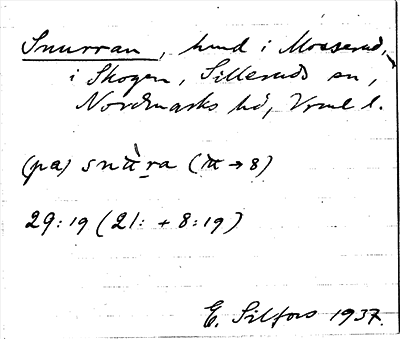 Snurran, hmd i Mosserud,
i Skogen, Silleruds sn,
Nordmarks hd, Vrml l.
(på) snʉ̀ra (ʉ → 8)
29:19 (21: + 8:19)
E. Silfors 1937.